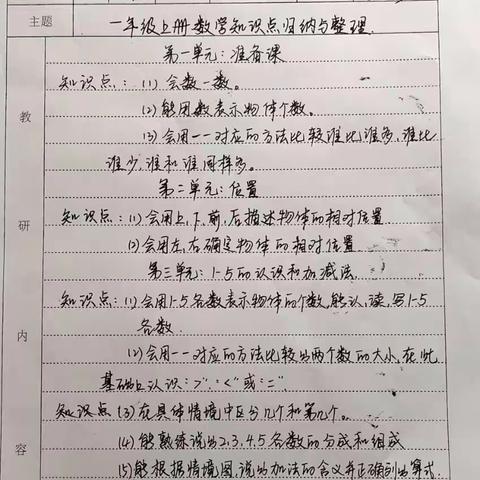 主题 一年级上册数学知识点归纳与整理.
第一单元：准备课
知识点：(1) 会数一数。
(2) 能用数表示物体个数。
教 (3) 会用一一对应的方法比较谁比谁多，谁比
谁少，谁和谁同样多。
第二单元：位置
研 知识点：(1) 会用上、下、前、后描述物体的相对位置
(2) 会用左、右确定物体的相对位置
第三单元：1-5的认识和加减法.
知识点：(1) 会用1-5各数表示物体的个数，能认、读、写1-5
内 各数.
(2) 会用一一对应的方法比较出两个数的大小，在此
基础上认识：">"、"<"或"="
知识点 (3) 在具体情境中区分几个和第几个。
容 (4) 能熟练说出2,3,4,5各数的分成和组成
(5) 能根据情境图，说出加法的含义并正确列出算式.